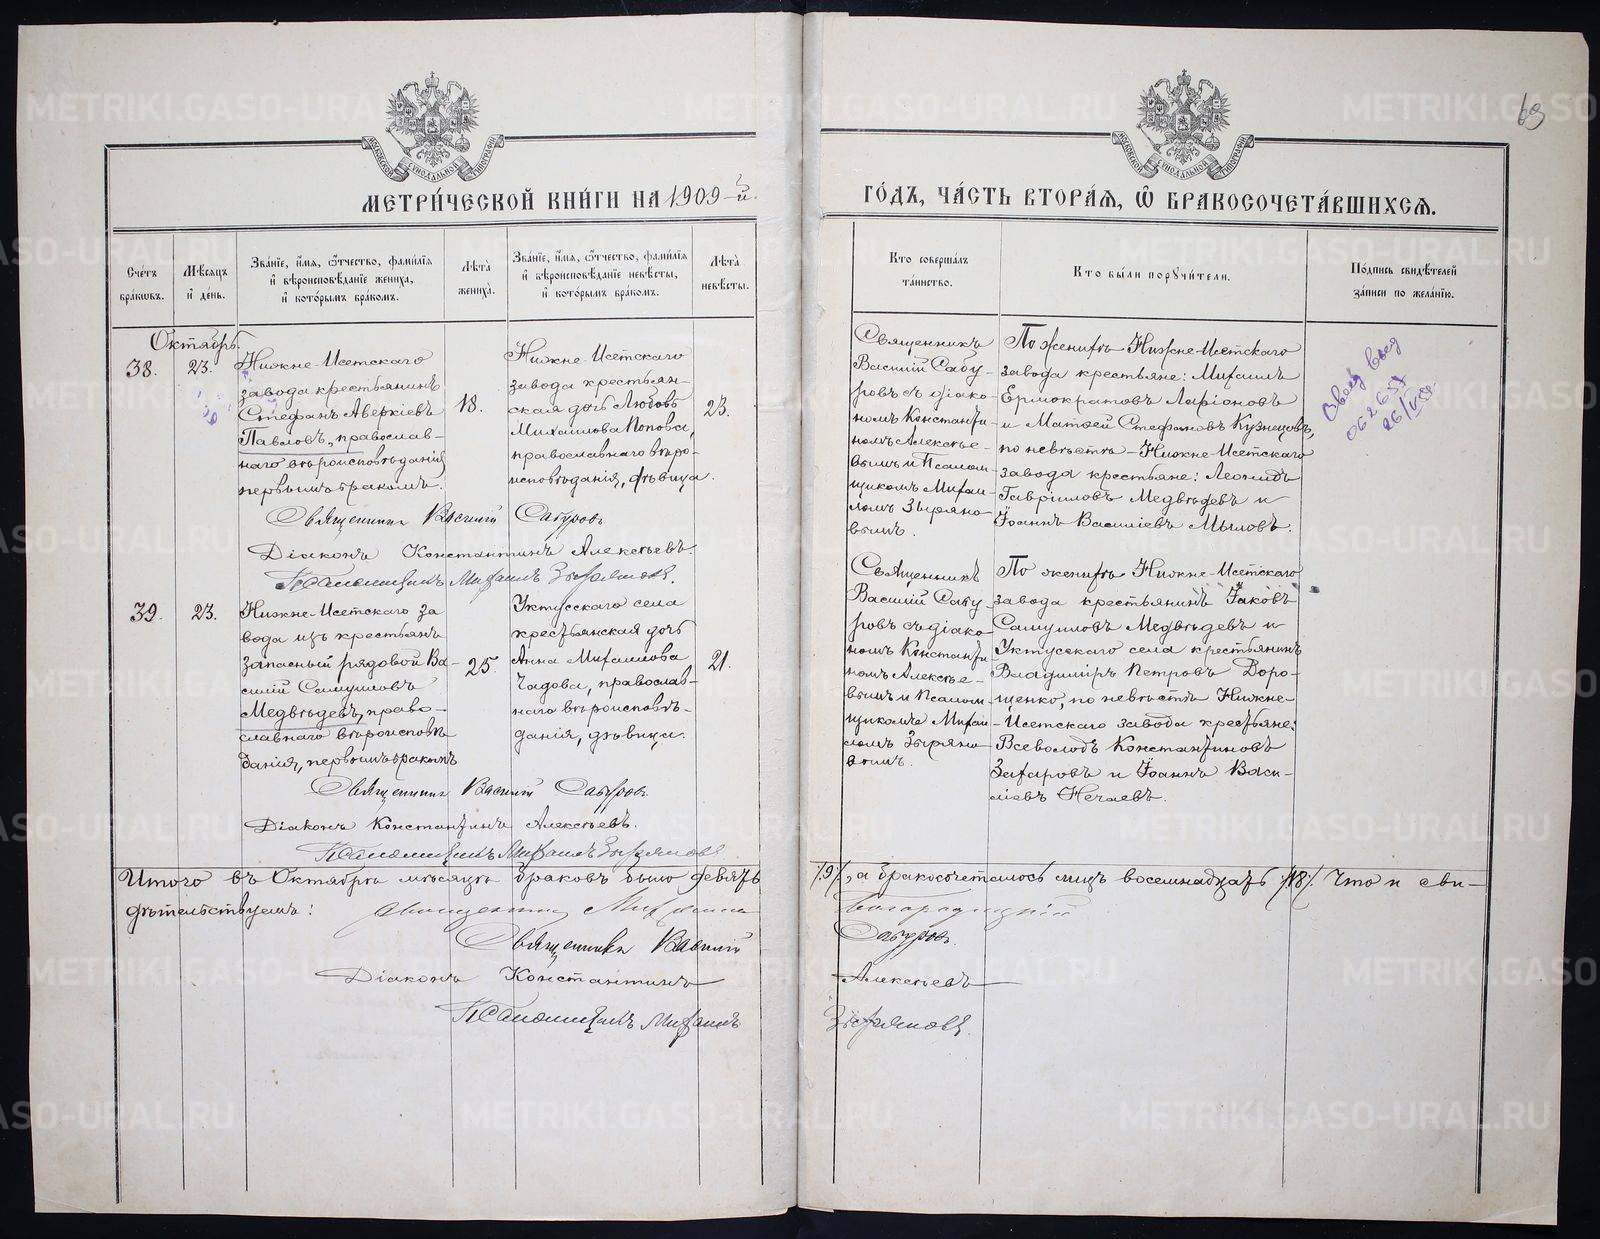 63
МОСКОВСКОЙ СѴНОДАЛЬНОЙ ТИПОГРАФІИ
МОСКОВСКОЙ СѴНОДАЛЬНОЙ ТИПОГРАФІИ
МЕТРИ́ЧЕСКОЙ КНИ́ГИ НА 1909-й.
ГО́ДЪ, ЧА́СТЬ ВТОРА́Ѧ, Ѽ БРАКОСОЧЕТА́ВШИХСѦ.
Сче́тъ бра́кѡвъ.
Мѣ́сѧцъ и҆ де́нь.
Зва́нїе, и҆́мѧ, ѻ҆́тчество, фами́лїѧ и҆ вѣроисповѣ́данїе жениха̀, и҆ кото́рымъ бра́комъ.
Лѣ̑та жениха̀.
Зва́нїе, и҆́мѧ, ѻ҆́тчество, фами́лїѧ и҆ вѣроисповѣ́данїе невѣ́сты, и҆ кото́рымъ бра́комъ.
Лѣ̑та невѣ́сты.
Кто̀ соверша́лъ та́инство.
Кто̀ бы́ли порꙋчи́тели.
По́дпись свидѣ́телей за́писи по жела́нїю.
Октябрь.
38.
23.
Нижне-Исетскаго
завода крестьянинъ
Стефанъ Аверкіевъ
Павловъ, православ-
наго вѣроисповѣданія
первымъ бракомъ.
18.
Нижне-Исетскаго
завода крестьян-
ская дочь Любовь
Михаилова Попова,
православнаго вѣро-
исповѣданія, дѣвица.
23.
Священникъ
Василій Сабу-
ровъ съ діако-
номъ Константи-
номъ Алексѣе-
вымъ и Псалом-
щикомъ Михаи-
ломъ Зыряно-
вымъ.
По женихѣ Нижне-Исетскаго
завода крестьяне: Михаилъ
Ермократовъ Ларіоновъ
и Матѳей Стефановъ Кузнецовъ,
по невѣстѣ - Нижне-Исетскаго
завода крестьяне: Леонидъ
Гавриловъ Медвѣдевъ и
Іоаннъ Василіевъ Мыловъ.
062657
Священникъ Василій Сабуровъ
Діаконъ Константинъ Алексѣевъ.
Псаломщикъ Михаилъ Зыряновъ.
39.
23.
Нижне-Исетскаго за
вода изъ крестьянъ
запасный рядовой Ва-
силій Самуиловъ
Медвѣдевъ, право-
славнаго вѣроисповѣ
данія, первымъ бракомъ
25.
Уктусскаго села
крестьянская дочь
Анна Михаилова
Чадова, православ-
наго вѣроисповѣ-
данія, дѣвица.
21.
Священникъ
Василій Сабу
ровъ съ діако-
номъ Константи
номъ Алексѣе-
вымъ и Псалом-
щикомъ Михаи-
ломъ Зыряно
вымъ.
По женихѣ Нижне-Исетскаго
завода крестьянинъ Іаковъ
Самуиловъ Медвѣдевъ и
Уктусскаго села крестьянинъ
Владиміръ Петровъ Доро-
щенко, по невѣстѣ Нижне-
Исетскаго завода крестьяне:
Всеволодъ Константиновъ
Захаровъ и Іоаннъ Васи-
ліевъ Нечаевъ.
Священникъ Василій Сабуровъ.
Діаконъ Константинъ Алексѣевъ.
Псаломщикъ Михаилъ Зыряновъ
Итого въ Октябрѣ мѣсяцѣ браковъ было девять /9/, а бракосочеталось лицъ восемнадцать /18/. Что и сви-
дѣтельствуемъ: Священникъ Богородицкій
Священникъ Василій Сабуровъ.
Діаконъ Константинъ Алексѣевъ
Псаломщикъ Михаилъ Зыряновъ.
METRIKI.GASO-URAL.RU